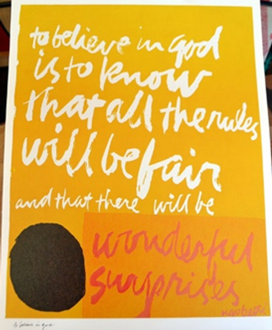 to believe in god
is to know
that all the rules
will be fair
and that there will be
wonderful
surprises
to believe in god